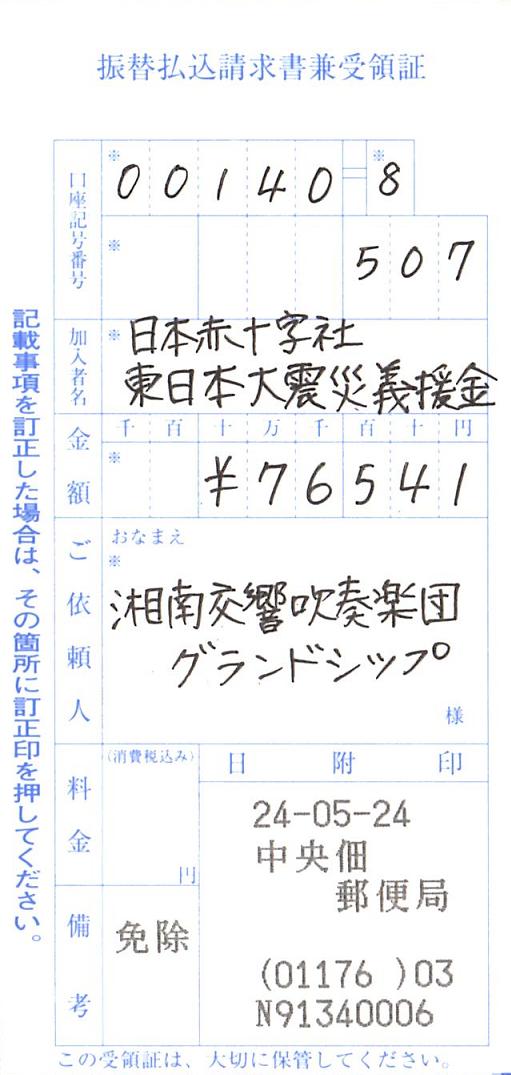 振替払込請求書兼受領証
口座記号番号
※ 00140 ※ 8
※ 507
加入者名
※ 日本赤十字社
東日本大震災義援金
金額
千 百 十 万 千 百 十 円
※ ¥76541
ご依頼人
おなまえ
※
湘南交響吹奏楽団
グランドシップ
様
料金
(消費税込み)
円
日 附 印
24-05-24
中央佃
郵便局
(01176 )03
N91340006
備考
免除
記載事項を訂正した場合は、その箇所に訂正印を押してください。
この受領証は、大切に保管してください。